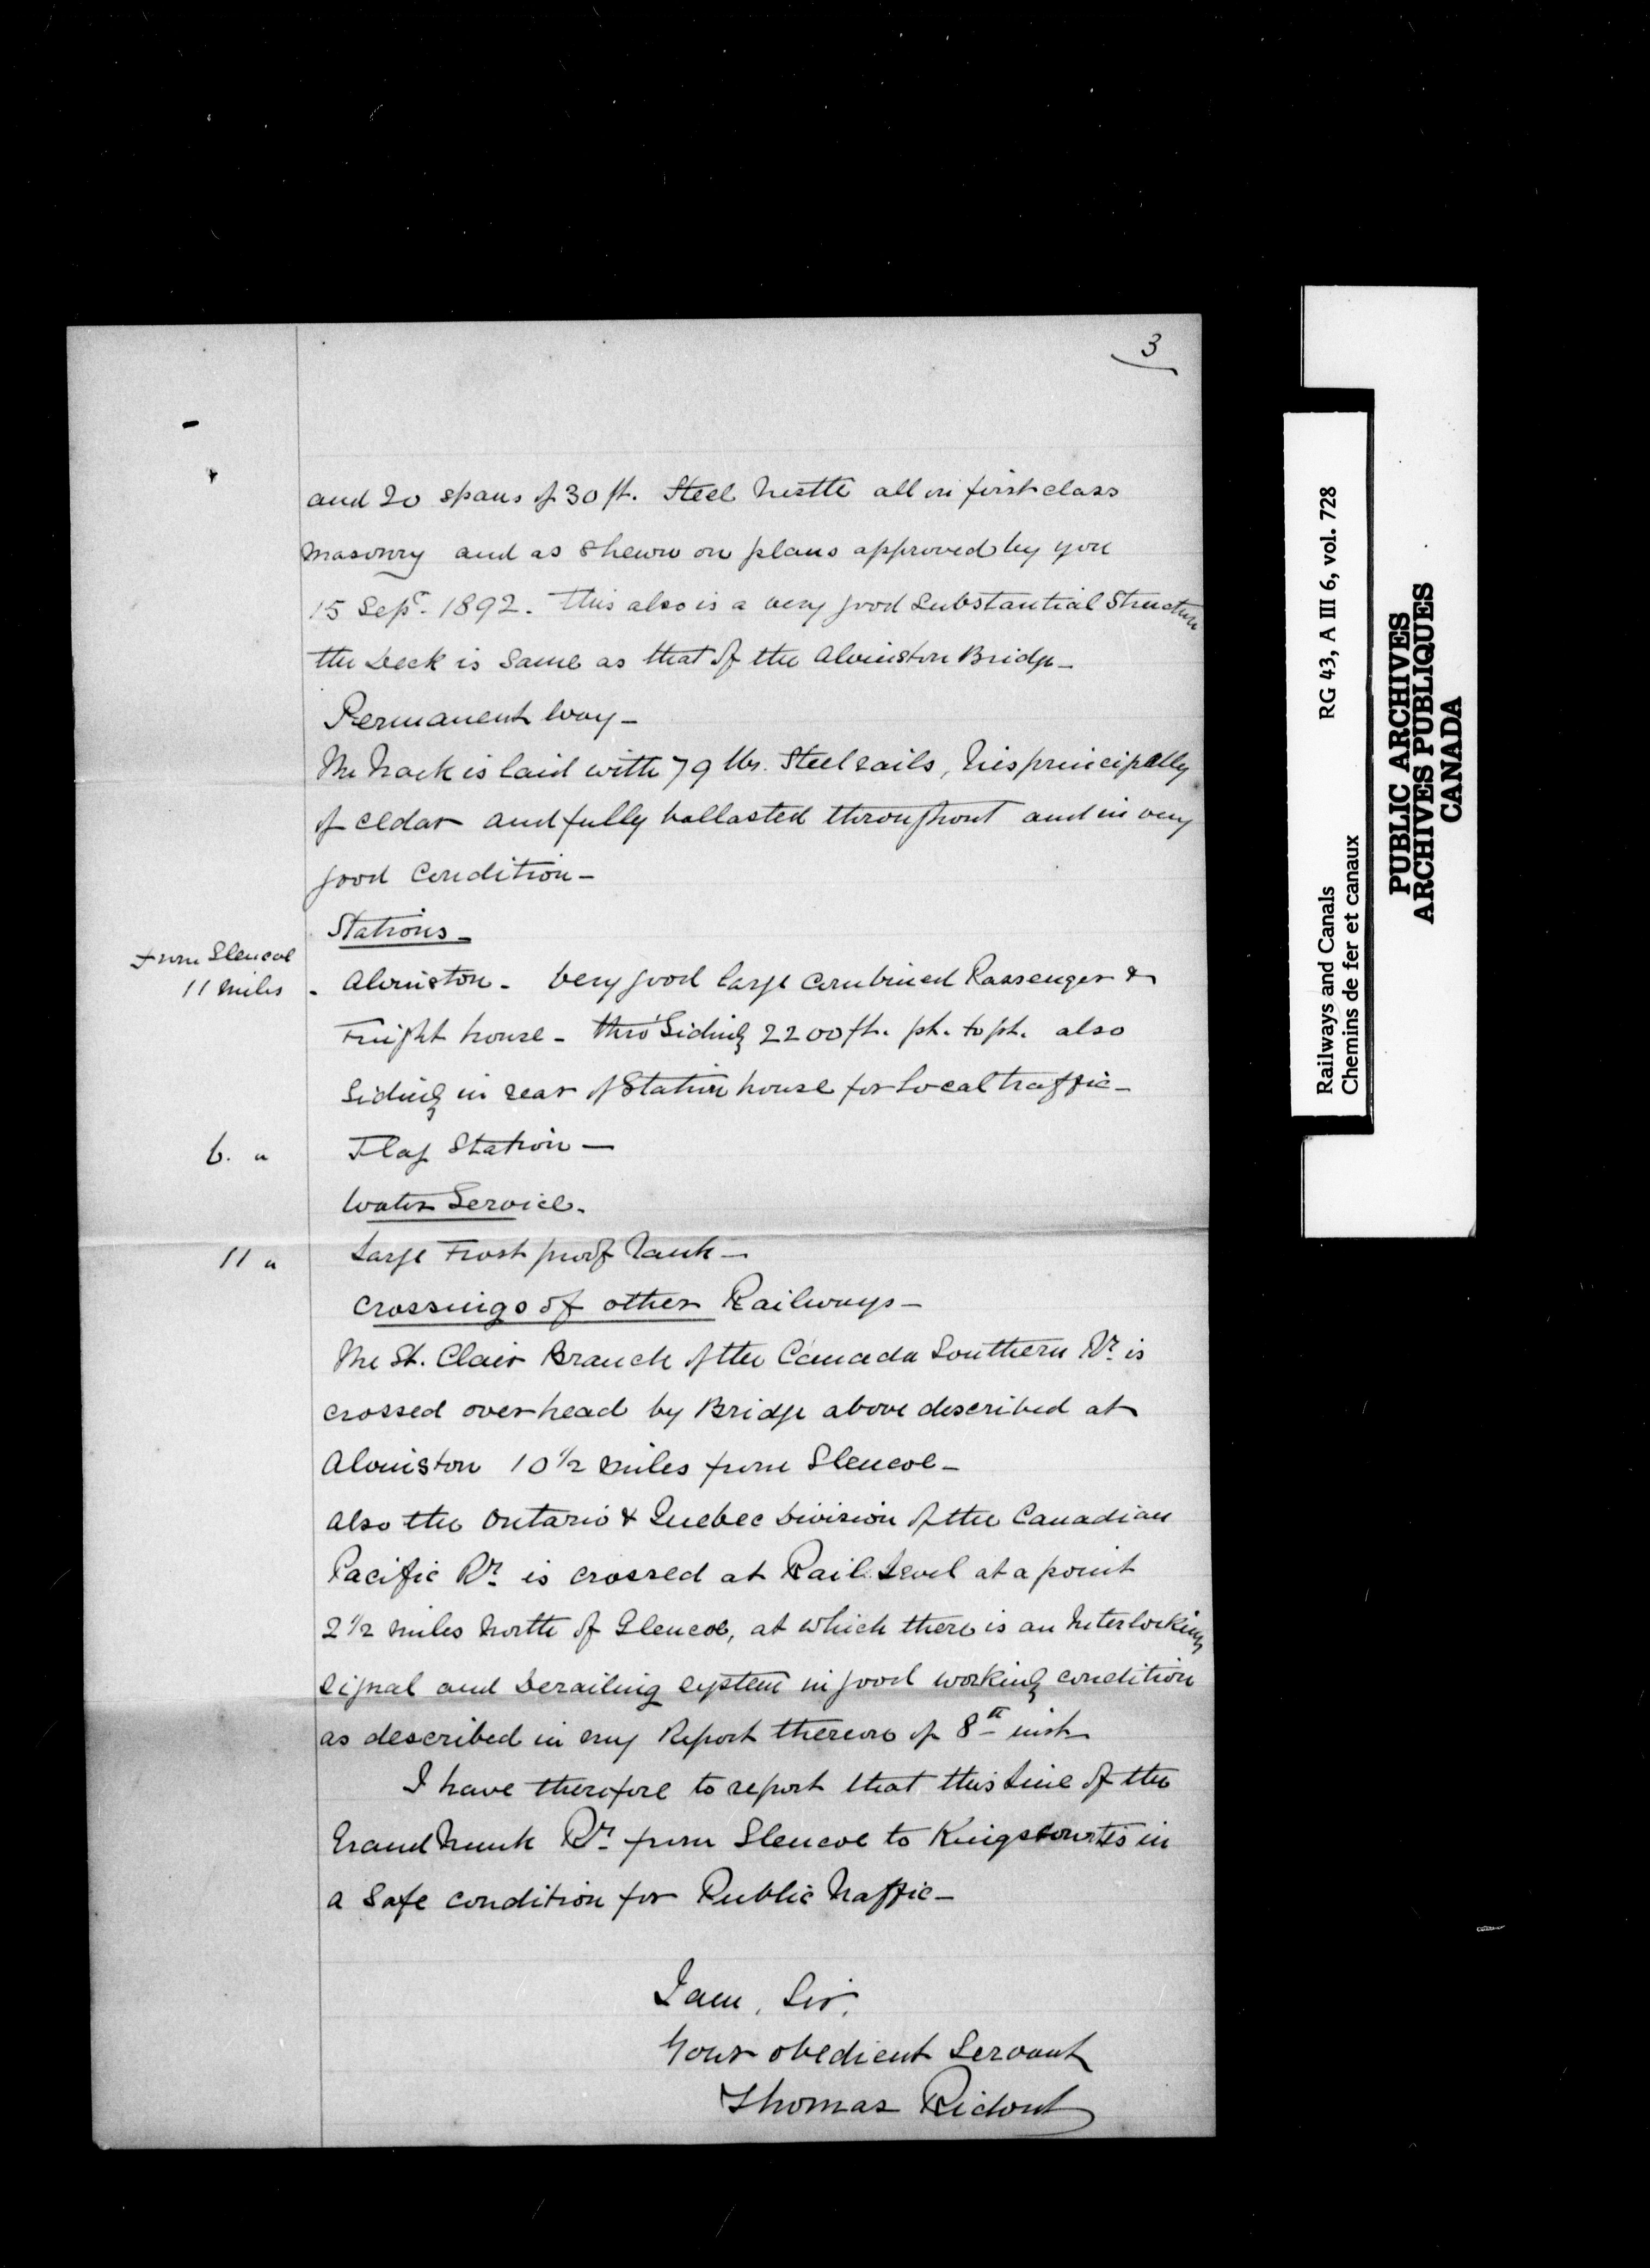 3
and 20 spans of 30 ft. Steel Trestle all on first class
masonry and as shewn on plans approved by you
15 Sept. 1892. This also is a very good Substantial Structure
the Deck is Same as that of the Alvinston Bridge_
Permanent Way_
The Track is laid with 79 lbs. Steel rails, Ties principally
of cedar and fully ballasted throughout and in very
good Condition_
Stations_
From Glencoe
11 miles - Alvinston - Very good large combined Passenger &
Freight house - thro' Siding 2200 ft. pt. to pt. also
Siding in rear of Station house for Local traffic_
6. " Flag Station_
Water Service.
11 " Large Frost proof Tank_
Crossings of other Railways_
The St. Clair Branch of the Canada Southern Ry. is
crossed overhead by Bridge above described at
Alvinston 10 1/2 miles from Glencoe_
Also the Ontario & Quebec Division of the Canadian
Pacific Ry. is crossed at Rail Level at a point
2 1/2 miles North of Glencoe, at which there is an Interlocking
Signal and Derailing system in good working condition
as described in my Report thereon of 8th inst
I have therefore to report that this Line of the
Grand Trunk Ry. from Glencoe to Kingscourt is in
a Safe condition for Public Traffic_
I am, Sir,
Your obedient Servant
Thomas Ridout
Railways and Canals RG 43, A III 6, vol. 728
Chemins de fer et canaux
PUBLIC ARCHIVES
ARCHIVES PUBLIQUES
CANADA